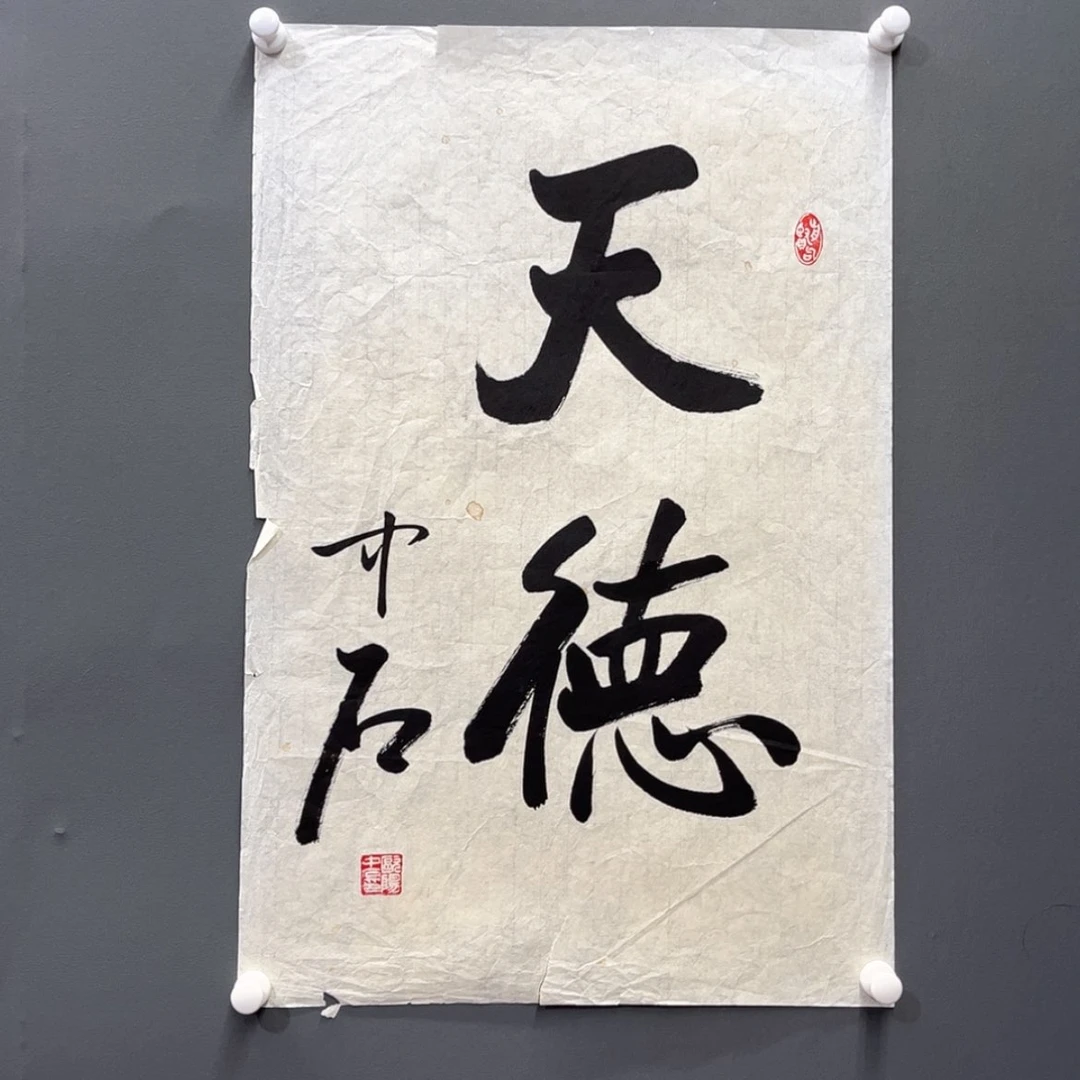 天德
中石